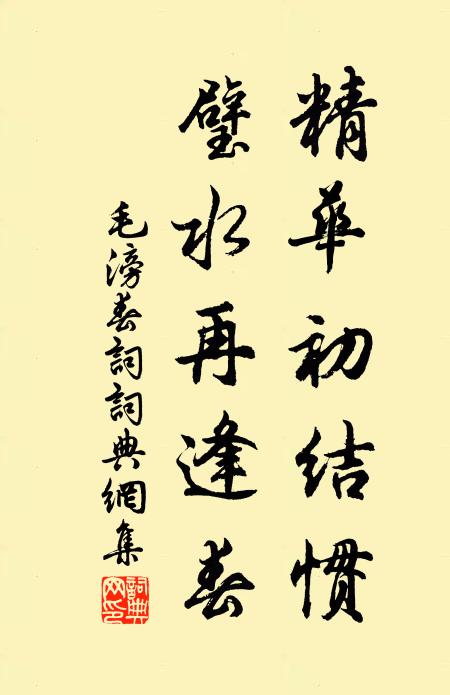 精華初結慣
璧水再逢春
毛滂春詞詞典網集
詞典